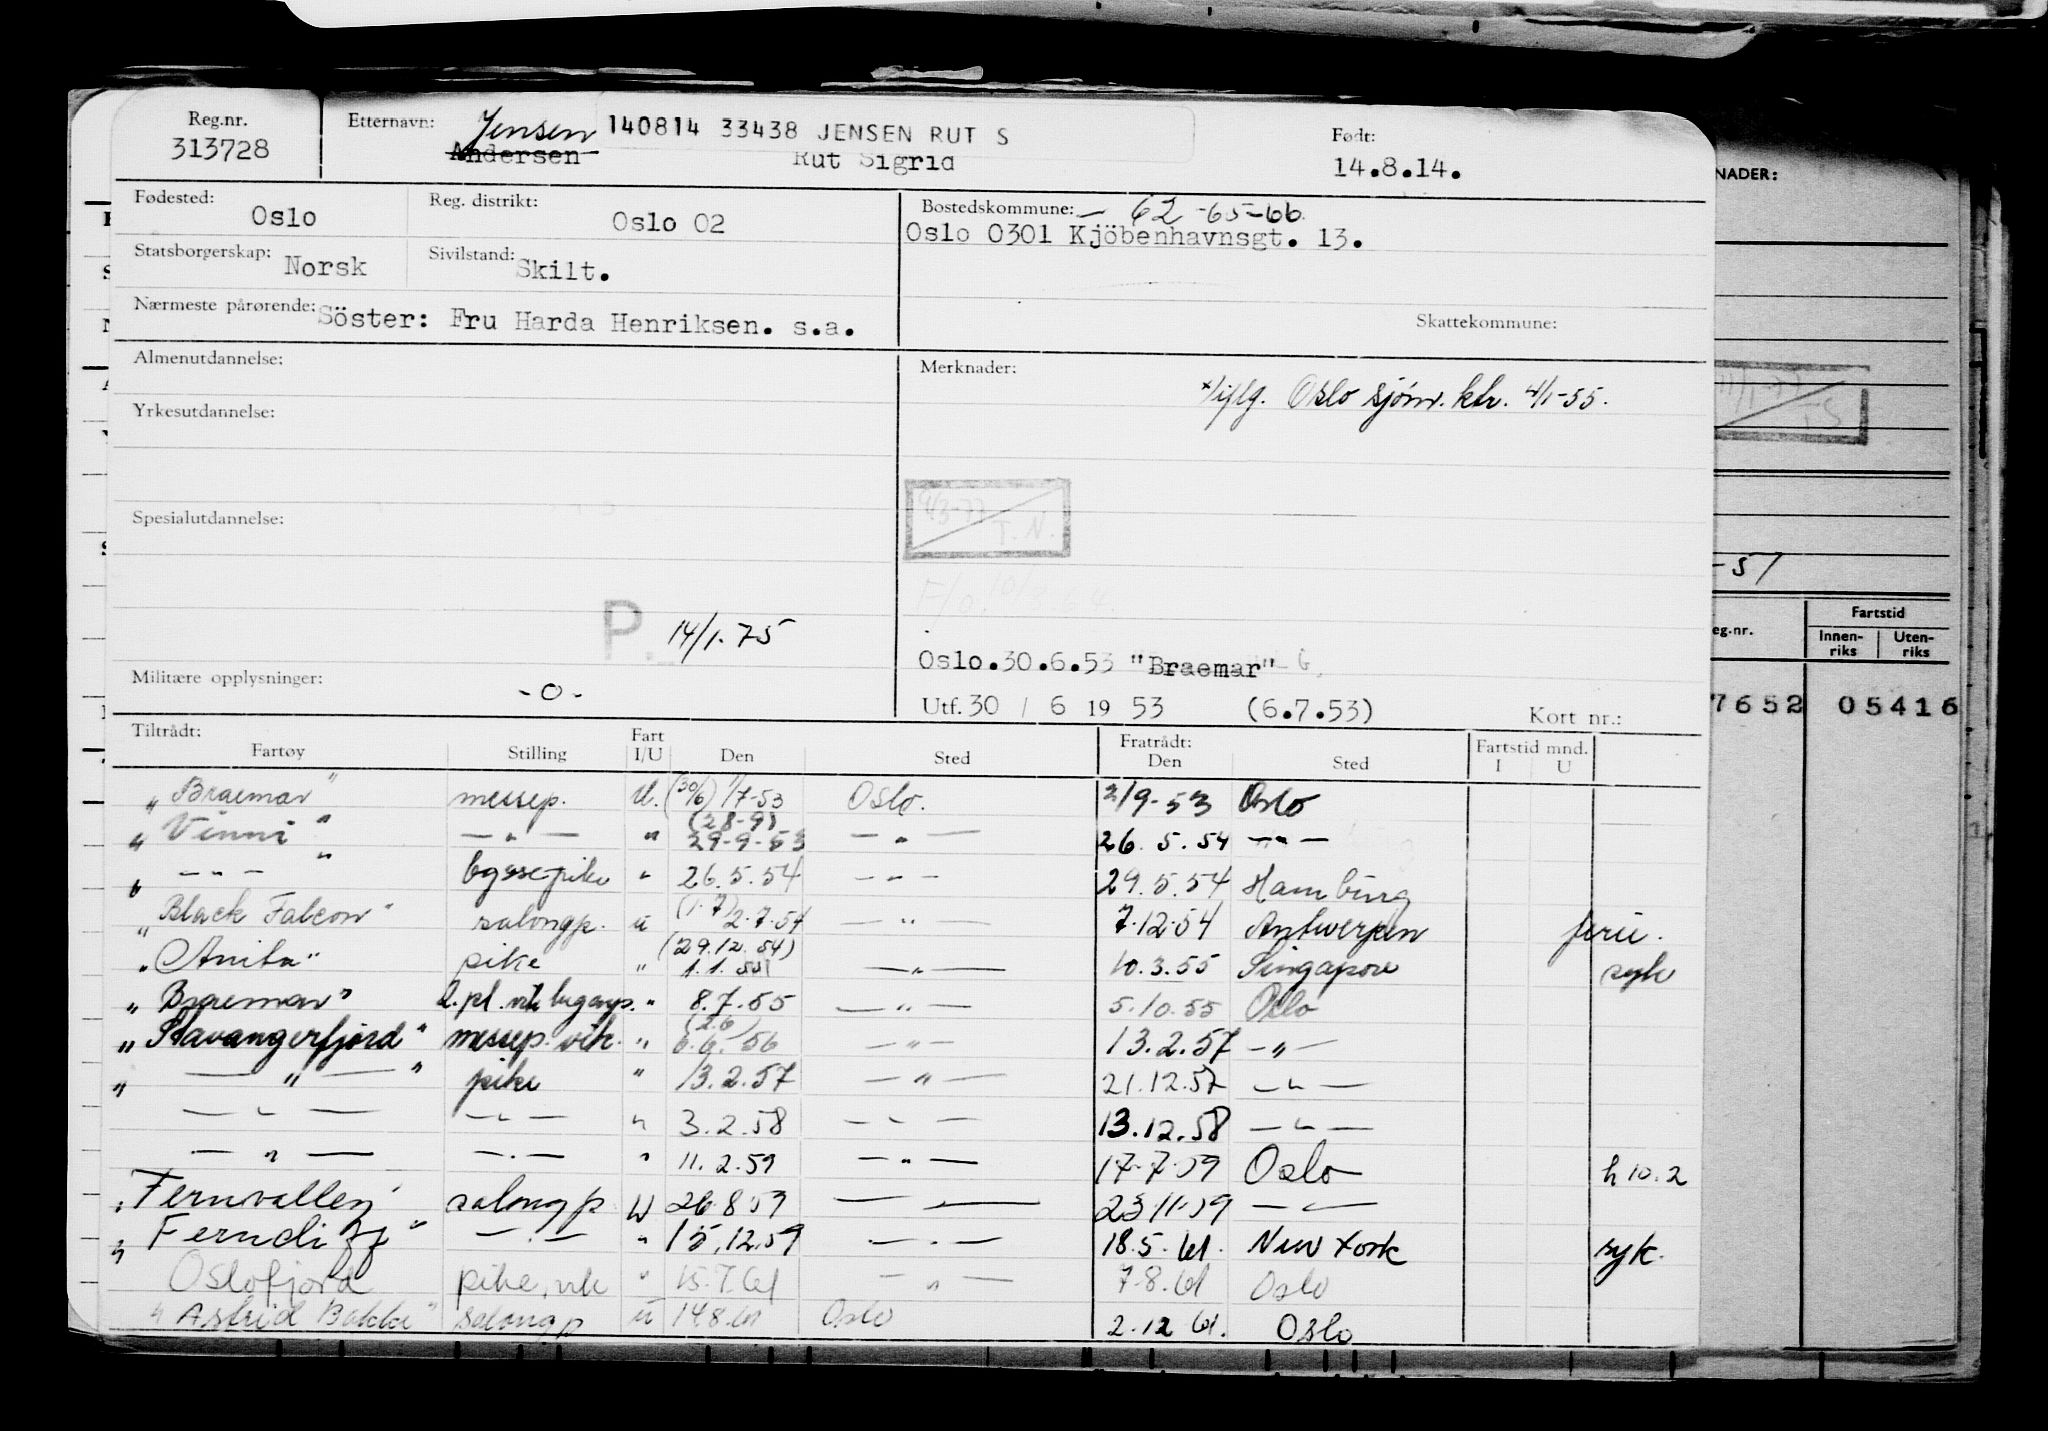 Reg.nr. 313728 Etternavn: Jensen Andersen 140814 33438 JENSEN RUT S Rut Sigrid Født: 14.8.14.
Fødested: Oslo Reg. distrikt: Oslo 02 Bostedskommune: - 62 -65-66.
Oslo 0301 Kjöbenhavnsgt. 13.
Statsborgerskap: Norsk Sivilstand: Skilt.
Nærmeste pårørende: Söster: Fru Harda Henriksen. s.a. Skattekommune:
Almenutdannelse: Merknader:
x/iflg. Oslo sjömr. ktr. 4/1-55.
Yrkesutdannelse:
9/3-77 T.N.
Spesialutdannelse:
F/o. 10/3.64.
P. 14/1.75
Oslo.30.6.53 "Braemar"
Militære opplysninger: -0-
Utf. 30 / 6 19 53 (6.7.53) Kort nr.:
Tiltrådt: Fratrådt:
Fartøy Stilling Fart I/U Den Sted Den Sted Fartstid mnd. I U
"Braemar" messep. U. (30/6) 1/7-53 Oslo. 2/9-53 Oslo
"Vinni" — " — " (28-9) 29-9-53 — " — 26.5.54 — " —
" — " — " byssepike " 26.5.54 — " — 29.5.54 Hamburg
"Black Falcon" salongp. u (1.7) 2.7.54 — " — 7.12.54 Antwerpen ferie.
"Anita" pike " (29.12.54) 1.1.55 — " — 10.3.55 Singapore syk
"Braemar" " 8.7.55 — " — 5.10.55 Oslo
"Stavangerfjord" messep. vik. " (2.6) 6.6.56 — " — 13.2.57 — " —
" — " — " pike " 13.2.57 — " — 21.12.57 — " —
— " — — " — " 3.2.58 — " — 13.12.58 — " —
— " — — " — " 11.2.59 — " — 17-7-59 Oslo h 10.2
"Fernvalley" salongp U 26.8.59 — " — 23.11.59 — " —
"Ferncliff" — " — " 15.12.59 — " — 18.5.61. New York syk.
Oslofjord pike, vik " 15.7.61 — " — 7.8.61 Oslo
"Astrid Bakke" salongp u 14.8.61 Oslo 2.12.61. Oslo
NADER:
11/1-77 TS
-51
eg.nr. Fartstid
Innen-riks Uten-riks
7652 05416